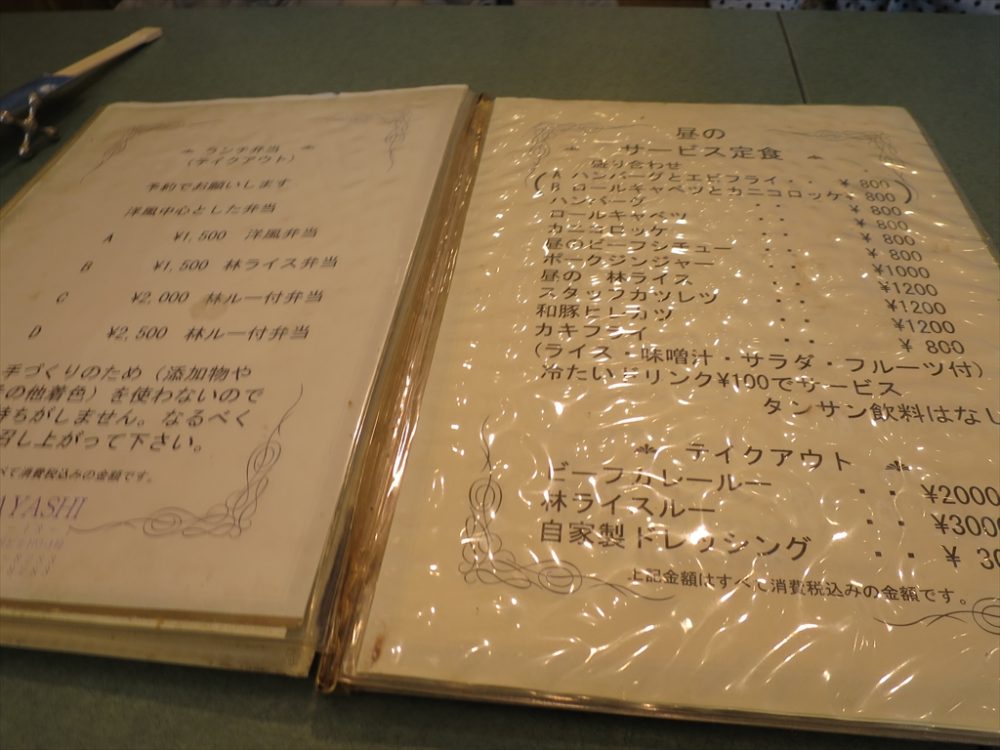 ランチ弁当
(テイクアウト)
予約でお願いします
洋風中心とした弁当
A ¥1,500 洋風弁当
B ¥1,500 林ライス弁当
C ¥2,000 林ルー付弁当
D ¥2,500 林ルー付弁当
手づくりのため(添加物や
の他着色)を使わないので
持ちがしません。なるべく
召し上がって下さい。
べて消費税込みの金額です。
AYASHI
昼の
サービス定食
盛り合わせ
A ハンバーグとエビフライ・・ ¥ 800
B ロールキャベツとカニコロッケ・ 800
ハンバーグ ・・ ¥ 800
ロールキャベツ ・・ ¥ 800
カニコロッケ ・・ ¥ 800
昼のビーフシチュー ・・ ¥ 800
ポークジンジャー ・・ ¥1000
昼の 林ライス ・・ ¥1200
スタッフカツレツ ・・ ¥1200
和豚ヒレカツ ・・ ¥1200
カキフライ ・・ ¥ 800
(ライス・味噌汁・サラダ・フルーツ付)
冷たいドリンク¥100でサービス
タンサン飲料はなし
テイクアウト
ビーフカレールー ・・ ¥2000
林ライスルー ・・ ¥3000
自家製ドレッシング ・・ ¥ 30
上記金額はすべて消費税込みの金額です。